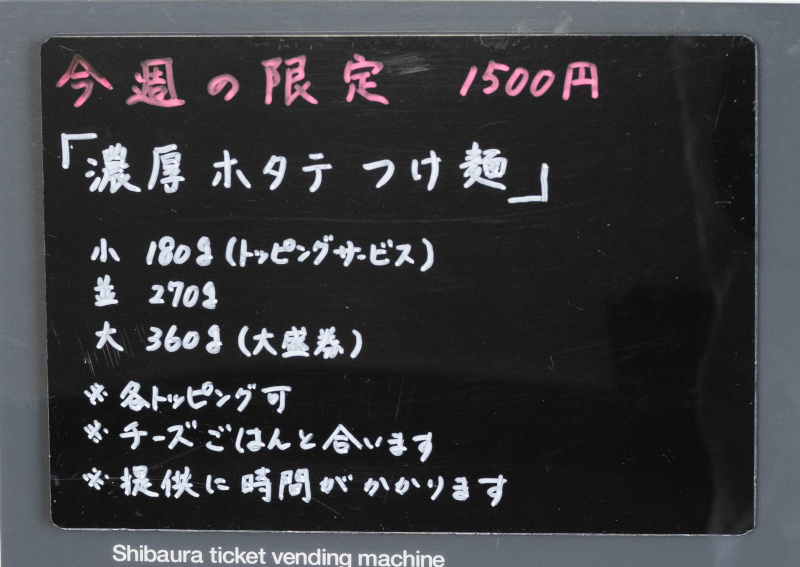 今週の限定 1500円
「濃厚 ホタテ つけ麺」
小 180g (トッピングサービス)
並 270g
大 360g (大盛券)
※ 各トッピング可
※ チーズごはんと合います
※ 提供に時間がかかります
Shibaura ticket vending machine